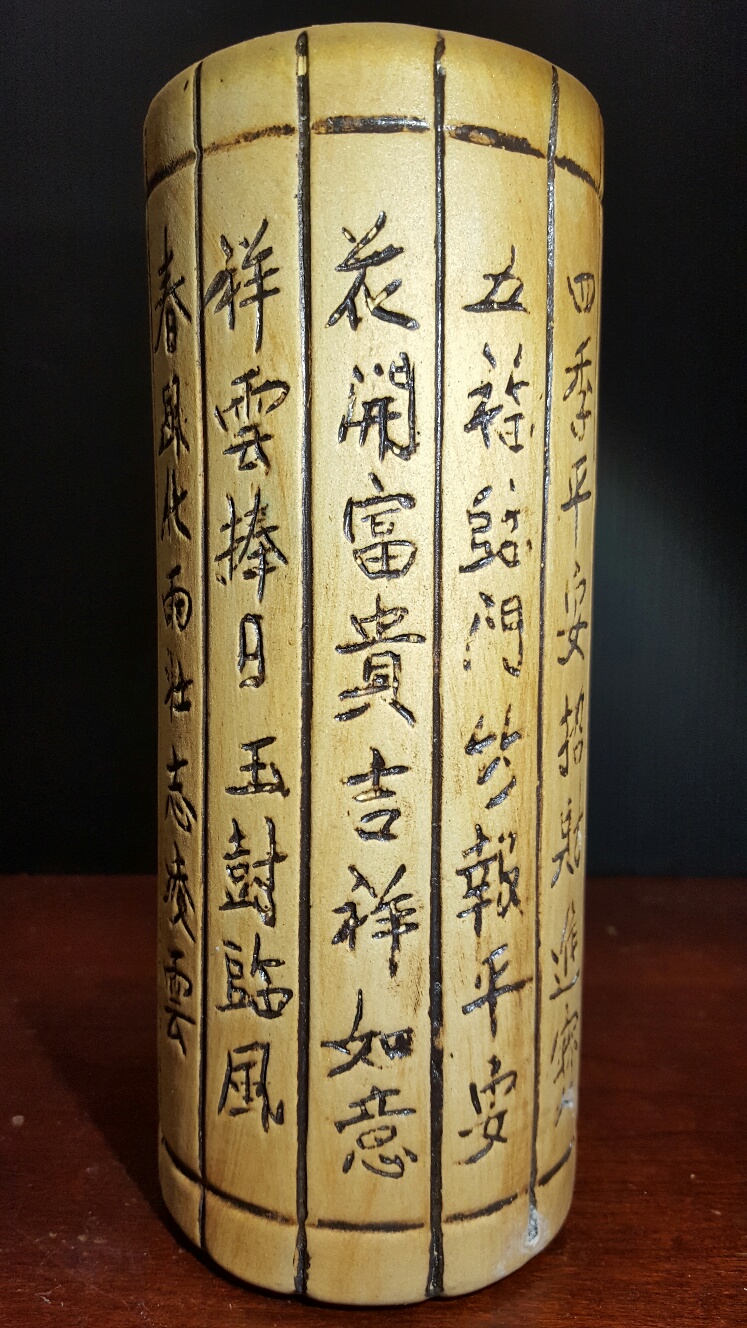 四季平安招財進寶
五福臨門竹報平安
花開富貴吉祥如意
祥雲捧日玉樹臨風
春風化雨壯志凌雲